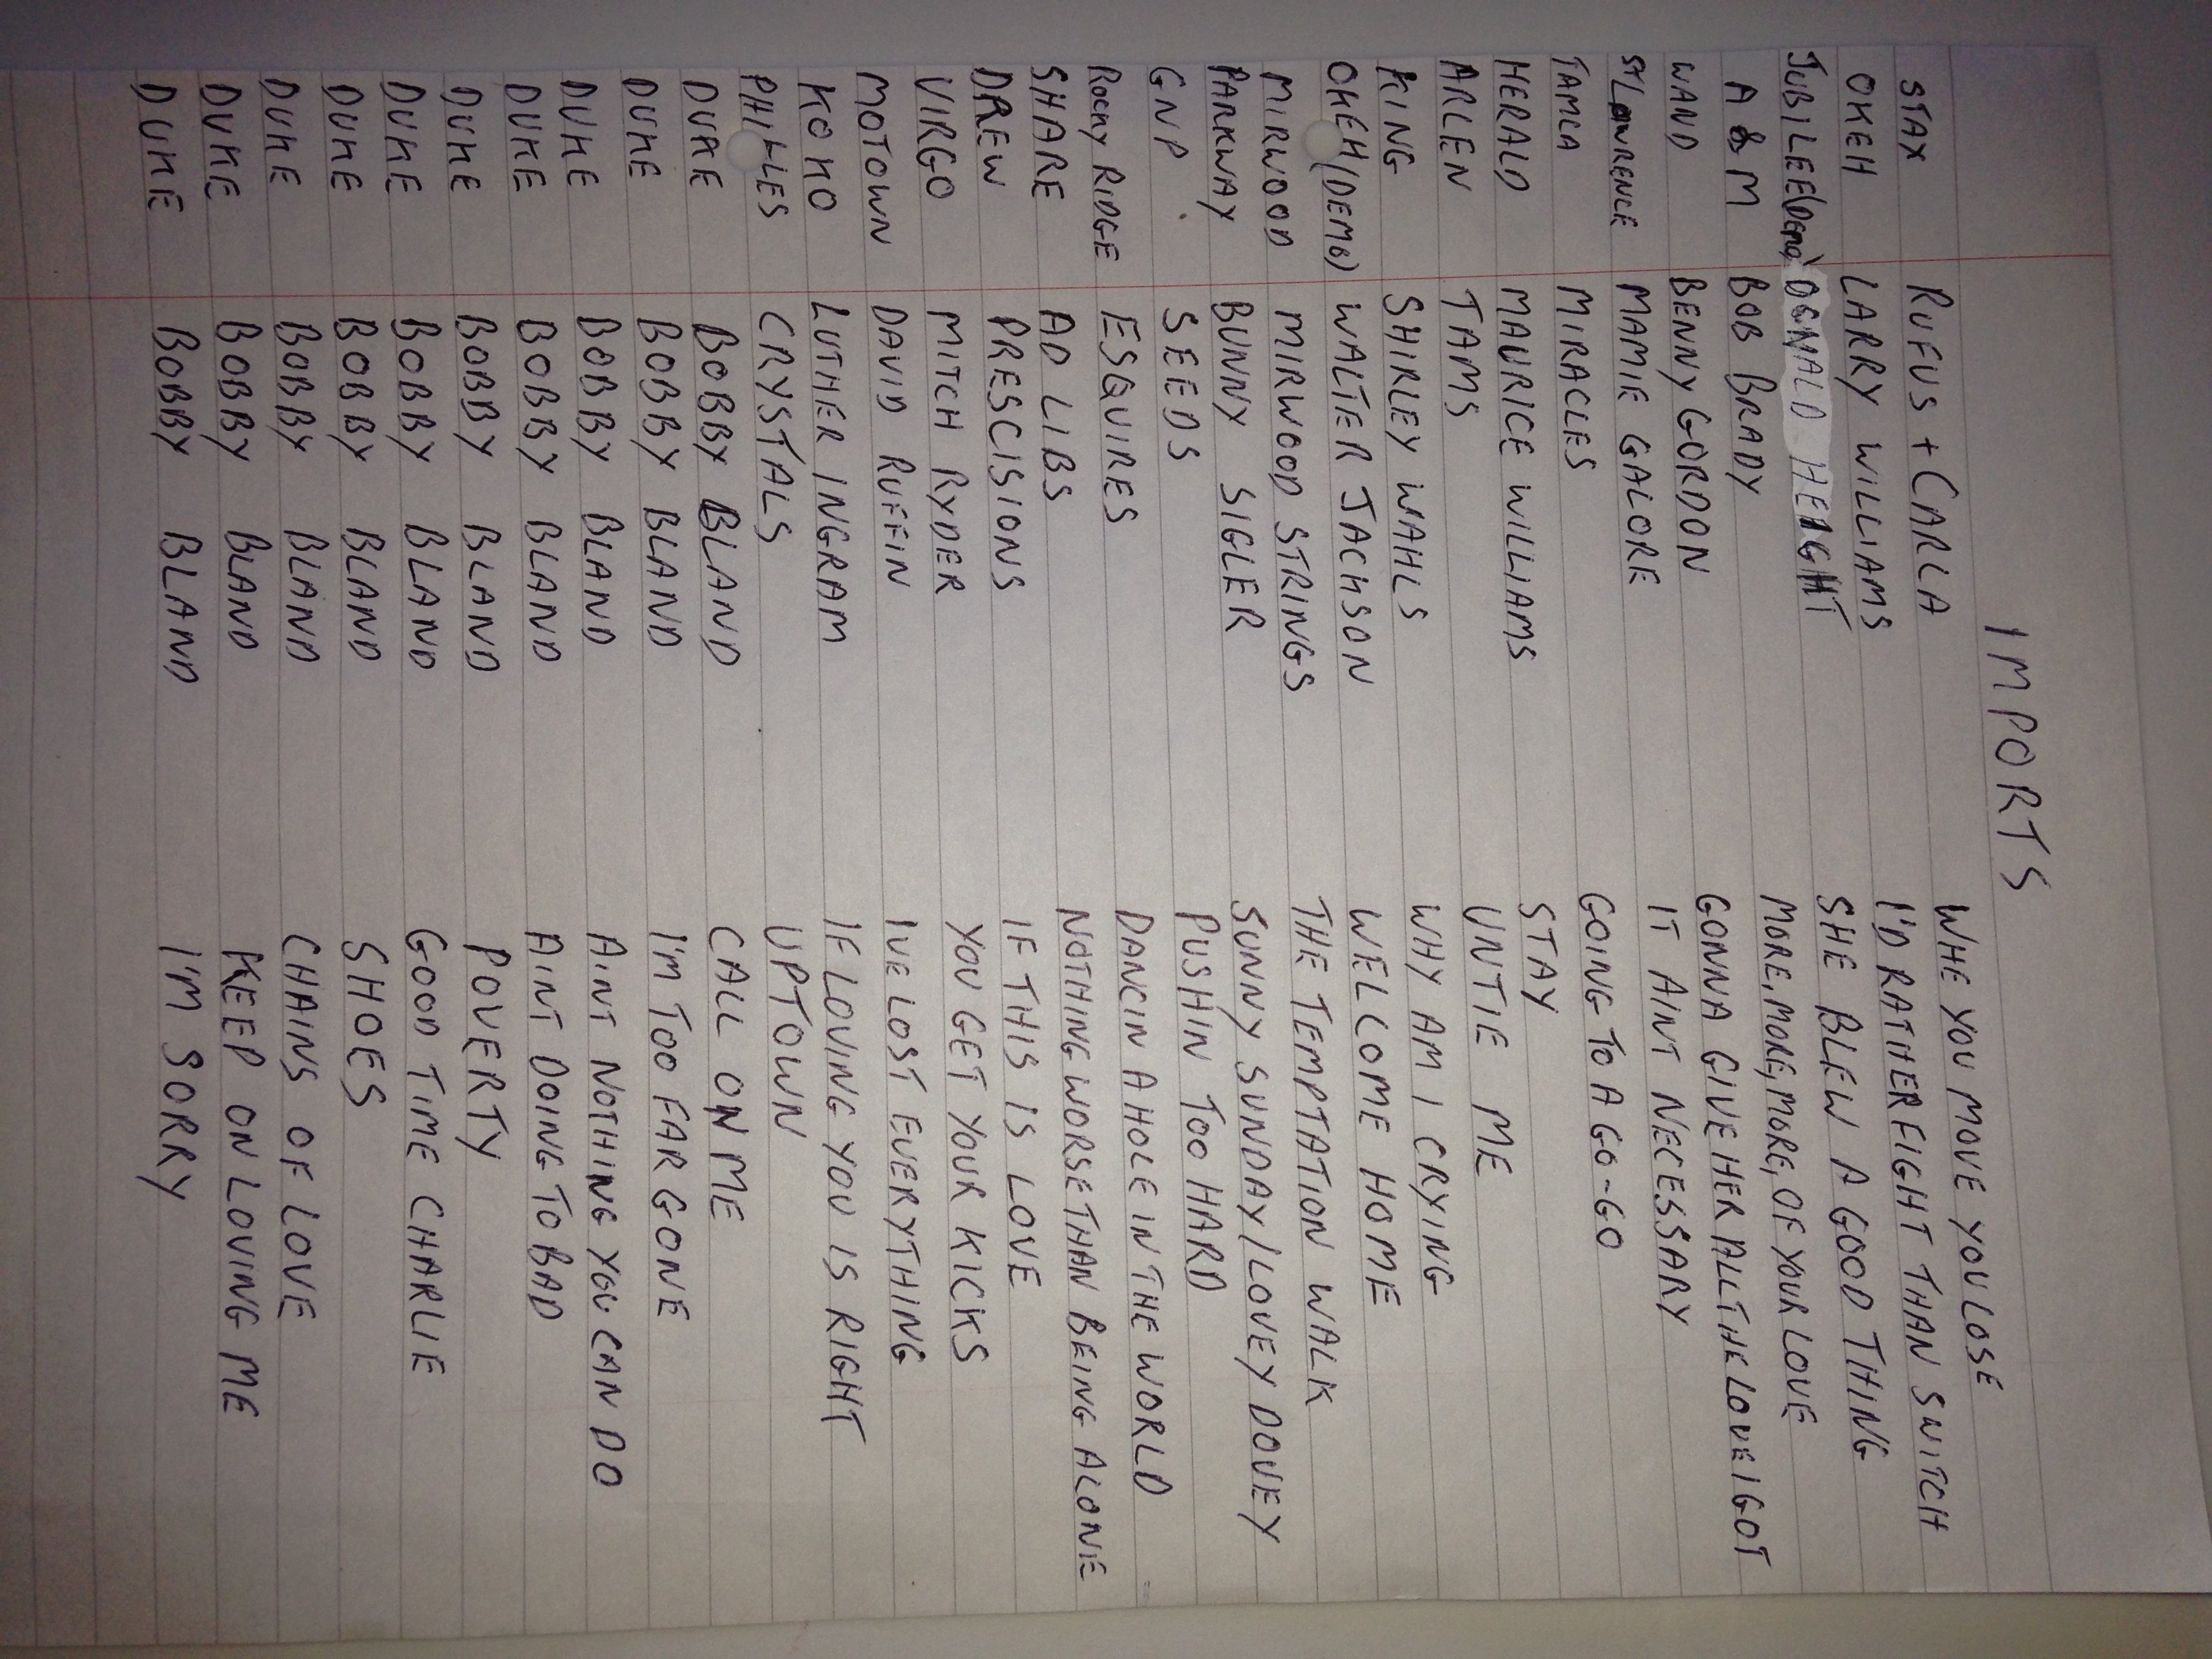 IMPORTS
STAX RUFUS + CARLA WHE YOU MOVE YOU LOSE
OKEH LARRY WILLIAMS I'D RATHER FIGHT THAN SWITCH
JUBILEE (Demo) DONALD HEIGHT SHE BLEW A GOOD THING
A & M BOB BRADY MORE, MORE, MORE, OF YOUR LOVE
WAND BENNY GORDON GONNA GIVE HER ALL THE LOVE I GOT
ST LAWRENCE MAMIE GALORE IT AINT NECESSARY
TAMLA MIRACLES GOING TO A GO-GO
HERALD MAURICE WILLIAMS STAY
ARLEN TAMS UNTIE ME
KING SHIRLEY WAHLS WHY AM I CRYING
OKEH (DEMO) WALTER JACKSON WELCOME HOME
MIRWOOD MIRWOOD STRINGS THE TEMPTATION WALK
PARKWAY BUNNY SIGLER SUNNY SUNDAY/LOVEY DOVEY
GNP SEEDS PUSHIN TOO HARD
ROCKY RIDGE ESQUIRES DANCIN A HOLE IN THE WORLD
SHARE AD LIBS NOTHING WORSE THAN BEING ALONE
DREW PRESCISIONS IF THIS IS LOVE
VIRGO MITCH RYDER YOU GET YOUR KICKS
MOTOWN DAVID RUFFIN IVE LOST EVERYTHING
KOKO LUTHER INGRAM IF LOVING YOU IS RIGHT
PHILLES CRYSTALS UPTOWN
DUKE BOBBY BLAND CALL ON ME
DUKE BOBBY BLAND I'M TOO FAR GONE
DUKE BOBBY BLAND AINT NOTHING YOU CAN DO
DUKE BOBBY BLAND AINT DOING TO BAD
DUKE BOBBY BLAND POVERTY
DUKE BOBBY BLAND GOOD TIME CHARLIE
DUKE BOBBY BLAND SHOES
DUKE BOBBY BLAND CHAINS OF LOVE
DUKE BOBBY BLAND KEEP ON LOVING ME
DUKE BOBBY BLAND I'M SORRY